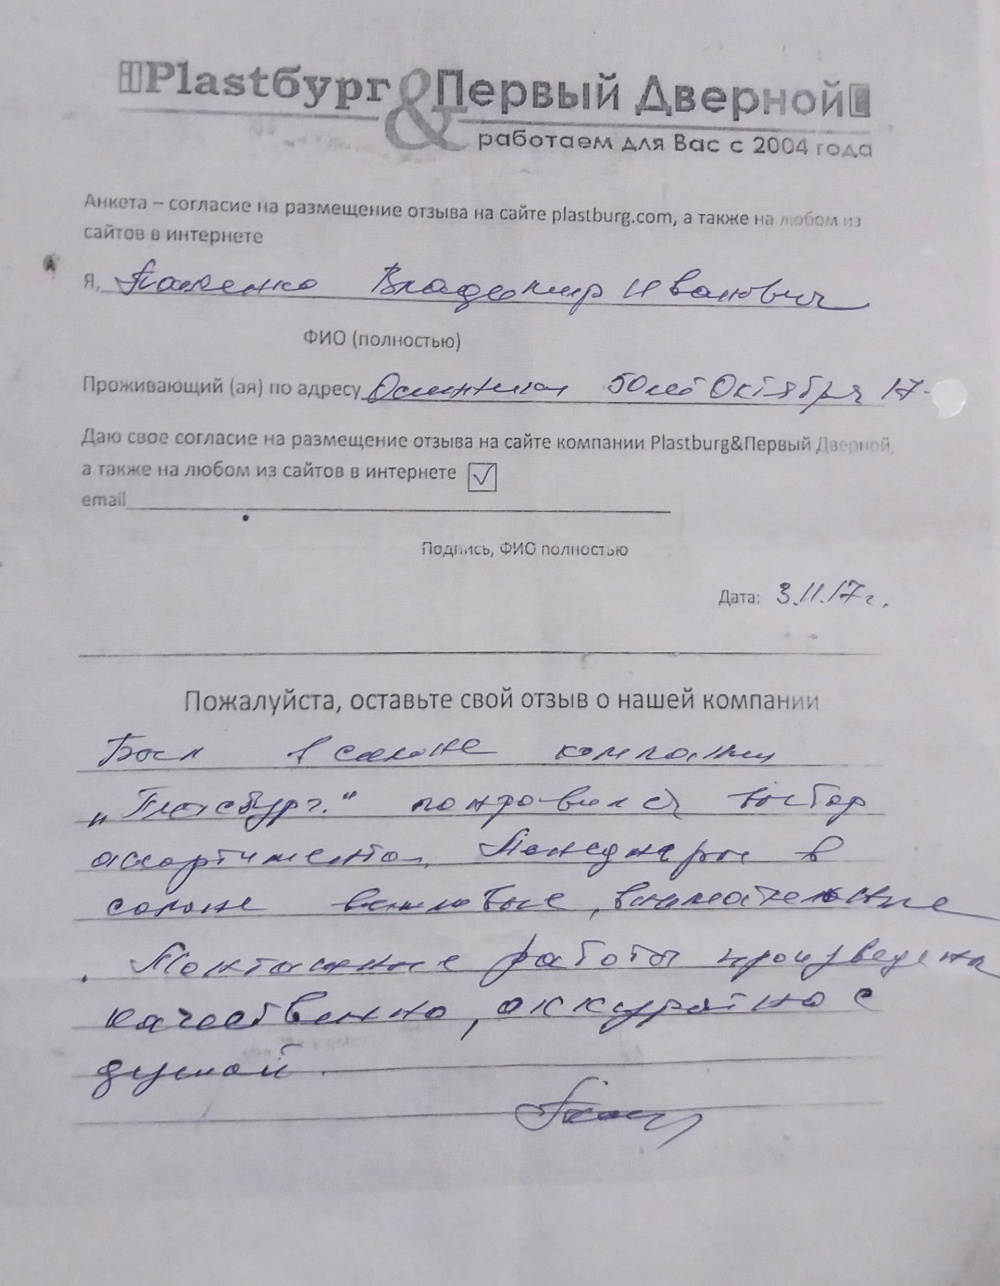 Plastбург & Первый Дверной
работаем для Вас с 2004 года
Анкета – согласие на размещение отзыва на сайте plastburg.com, а также на любом из
сайтов в интернете
Я, Владимир Иванович
ФИО (полностью)
Проживающий (ая) по адресу 50 лет Октября 17-
Даю свое согласие на размещение отзыва на сайте компании Plastburg&Первый Дверной,
а также на любом из сайтов в интернете ☑
email
Подпись, ФИО полностью
Дата: 3.11.17г.
Пожалуйста, оставьте свой отзыв о нашей компании
Был в салоне компании
„Пластбург." понравился выбор
ассортимента. Менеджеры в
салоне вежливые, внимательные
. Монтажные работы произведены
качественно, аккуратно с
душой.